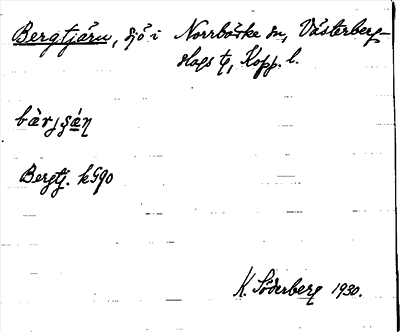 Bergtjärn, sjö i Norrbärke sn, Västerberg-
slags tg, Kopp. l.
bàr,ʂán
Bergtj. k590
K. Söderberg 1930.